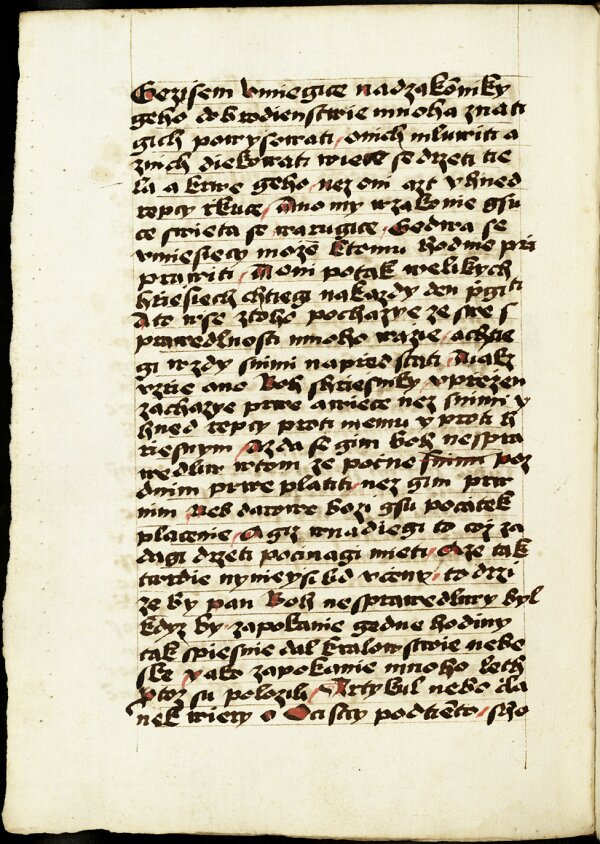 Gezisem vmiegice nadzakōniky
geho dobrodienstwie mnoha znati
gich powysowati, onich mluwiti a
znich diekowati wiece se drzeti tie
la a krwe geho, nez oni azt yhned
repcy rkuce, Ano my wzakonie gsu
ce swieta se warugice, Gedwa se
vmiesiecy mozē ktomu hodnie při
prawiti, A oni potak welikych
hriesiech chtiegi nakazdy den p̄giti
A to wse ztoho pochazye ze swe s
prawedlnosti mnoho wazie, achtie
gi wzdy snimi napred stati, Awakz
vzrie ano Boh shriesniky vprzezen
zachazye prwe awiece nez snimi y
hned repcy proti niemu y proti h
riesnym, Azda se gim boh nespra
wedliw wtom ze počne snimi poz
dnim prwe platiti, nez gim prw
nim, Neb darowe bozi gsu počatek
placenie, A giz wnadiegi to coz za
dagi drzeti počinagi mieti, A ze tak
twrdie nynieysi lid včeny, to drzi
ze by pan Boh nesprawedliwy byl
kdyz by zapokanie gedne hodiny
tak spiesnie dal kralowstwie nebe
ske yako zapokanie mnoho leth
ytoz su polozili, Artykul nebo čla
nek wiery o Ocistcy podtiēto, slo